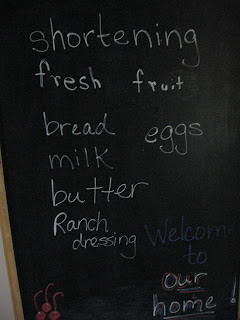 shortening
fresh fruit
bread eggs
milk
butter
Ranch
dressing
Welcome
to
our
home!